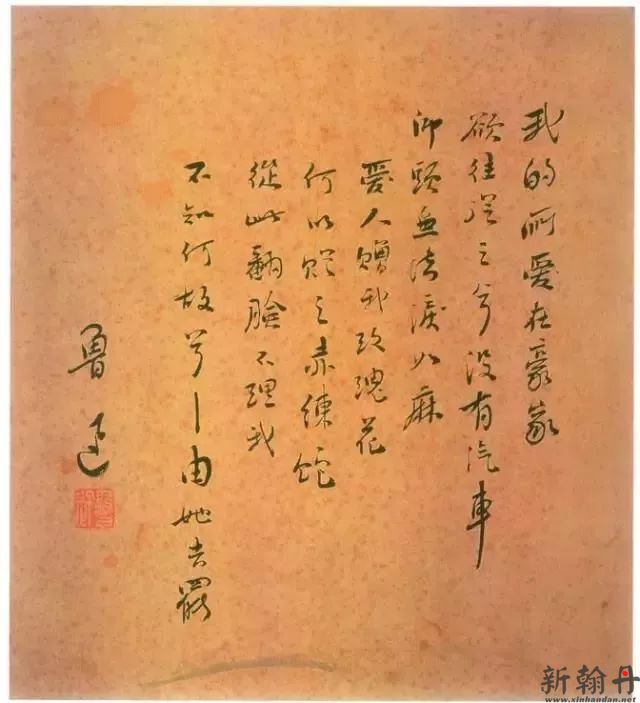 我的所愛在豪家
欲往從之兮没有汽車
仰頭無法淚如麻
愛人贈我玫瑰花
何以贈之赤練蛇
從此翻臉不理我
不知何故兮—由她去罷
魯迅
新翰丹
www.xinhandan.net